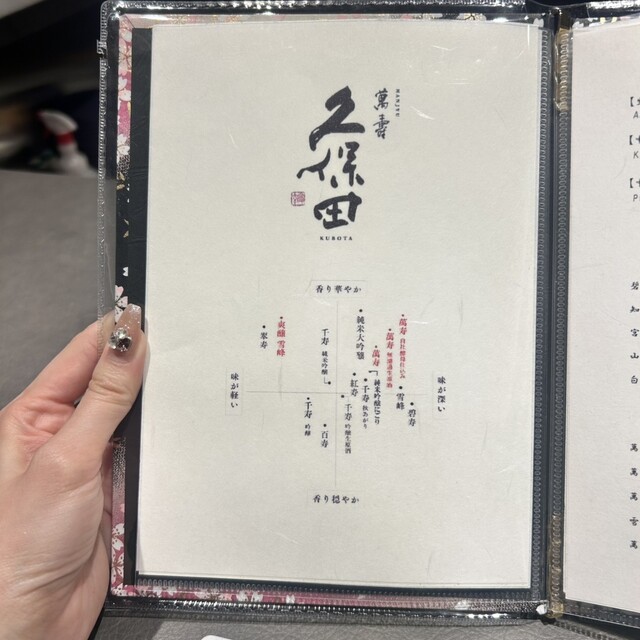 萬壽
MANJYU
久保田
KUBOTA
香り華やか
・萬寿 自社酵母仕込み
・萬寿 無濾過生原酒
・純米大吟醸
・爽醸 雪峰
・翠寿
千寿 純米吟醸
・萬寿
「純米吟醸にごり」
・千寿 秋あがり
・紅寿
・雪峰
・碧寿
味が軽い
味が深い
・千寿 吟醸
・百寿
・千寿 吟醸生原酒
香り穏やか
碧
知
宮
山
白
萬
萬
萬
音
萬